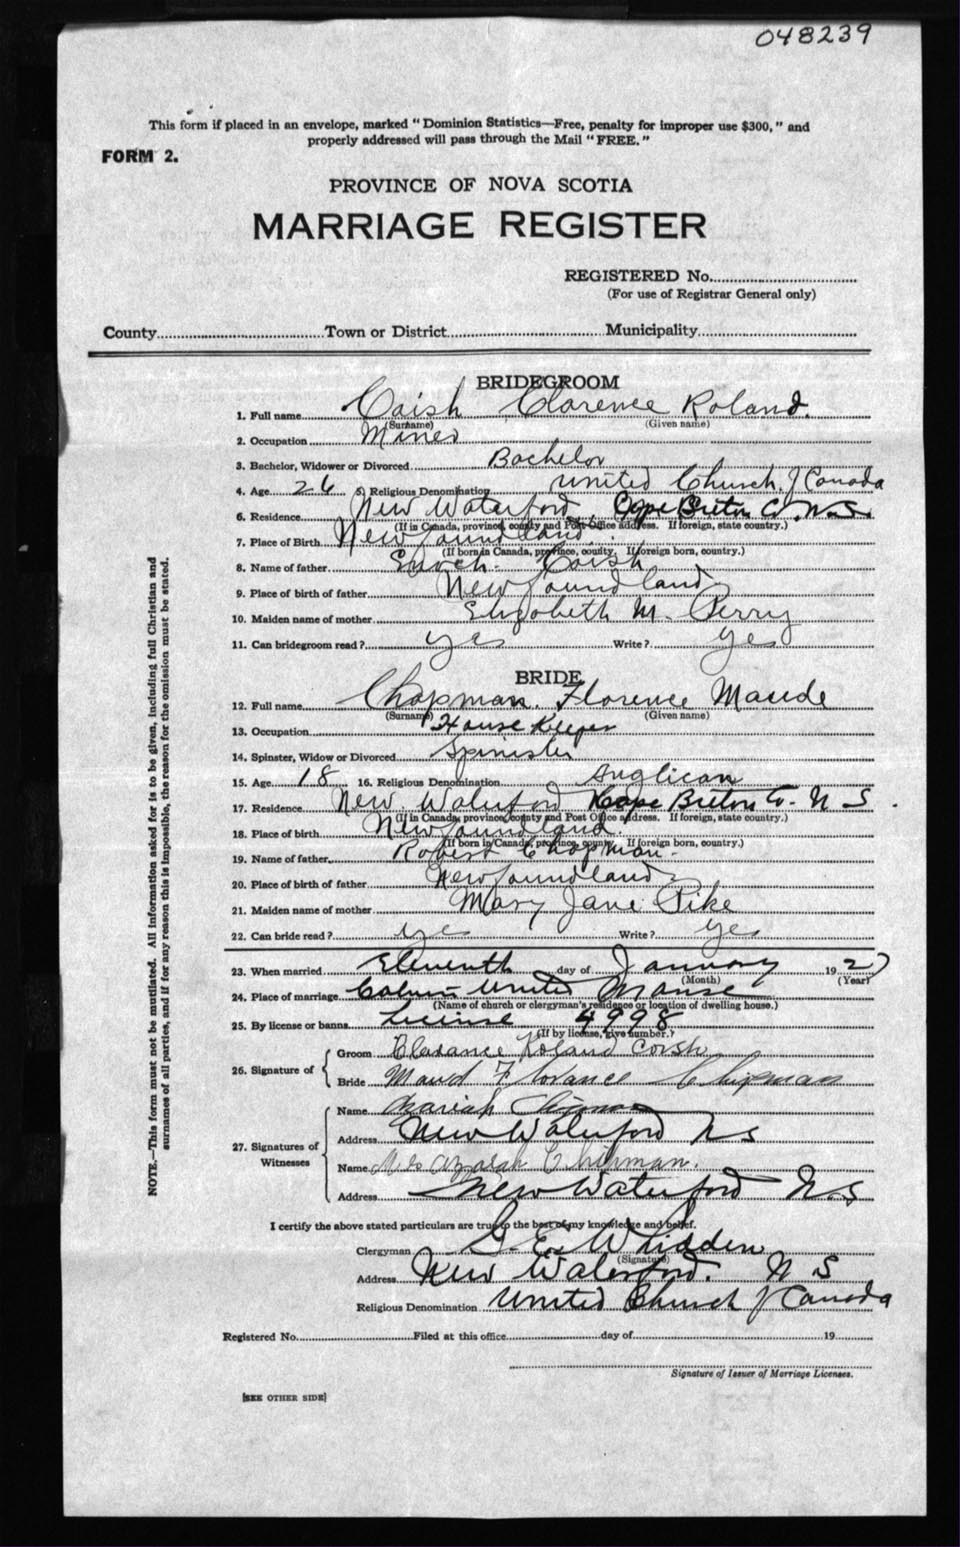 048239
This form if placed in an envelope, marked "Dominion Statistics—Free, penalty for improper use $300," and
properly addressed will pass through the Mail "FREE."
FORM 2.
PROVINCE OF NOVA SCOTIA
MARRIAGE REGISTER
REGISTERED No.
(For use of Registrar General only)
County Town or District Municipality
BRIDEGROOM
1. Full name Coish Clarence Roland.
(Surname) (Given name)
2. Occupation Miner
3. Bachelor, Widower or Divorced Bachelor
4. Age 26 5. Religious Denomination United Church of Canada
6. Residence New Waterford, Cape Breton Co. N.S.
(If in Canada, province, county and Post Office address. If foreign, state country.)
7. Place of Birth Newfoundland.
(If born in Canada, province, county. If foreign born, country.)
8. Name of father Enoch Coish
9. Place of birth of father Newfoundland
10. Maiden name of mother Elizabeth M. Perry
11. Can bridegroom read? yes Write? yes
BRIDE
12. Full name Chapman. Florence Maude
(Surname) (Given name)
13. Occupation House Keeper
14. Spinster, Widow or Divorced Spinister
15. Age 18 16. Religious Denomination Anglican
17. Residence New Waterford Cape Breton Co. N S.
(If in Canada, province, county and Post Office address. If foreign, state country.)
18. Place of birth Newfoundland.
(If born in Canada, province, county. If foreign born, country.)
19. Name of father Robert Chapman.
20. Place of birth of father Newfoundland
21. Maiden name of mother Mary Jane Pike
22. Can bride read? yes Write? yes
23. When married Eleventh day of January 1927
(Month) (Year)
24. Place of marriage Calvin United Manse
(Name of church or clergyman's residence or location of dwelling house.)
25. By license or banns License 4998
(If by license, give number.)
26. Signature of
Groom Clarance Roland Coish
Bride Maud Florance Chipman
27. Signatures of Witnesses
Name
Address New Waterford N S
Name Mrs
Address New Waterford N.S
I certify the above stated particulars are true to the best of my knowledge and belief.
Clergyman G. E. Whidden
(Signature)
Address New Waterford. N S
Religious Denomination United Church of Canada
Registered No. Filed at this office day of 19
Signature of Issuer of Marriage Licenses.
[SEE OTHER SIDE]
NOTE.—This form must not be mutilated. All information asked for is to be given, including full Christian and
surnames of all parties, and if for any reason this is impossible, the reason for the omission must be stated.